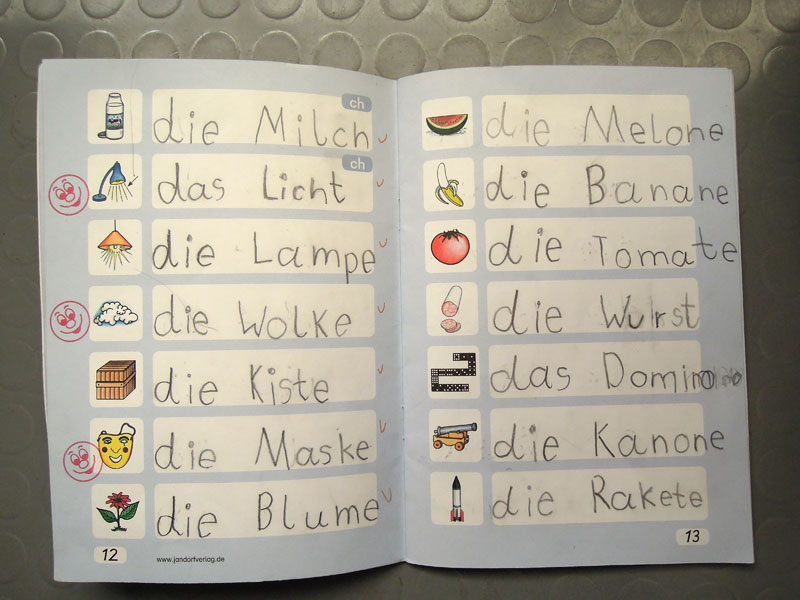 ch
die Milch
ch
das Licht
die Lampe
die Wolke
die Kiste
die Maske
die Blume
12
www.jandorfverlag.de
die Melone
die Banane
die Tomate
die Wurst
das Domino
die Kanone
die Rakete
13